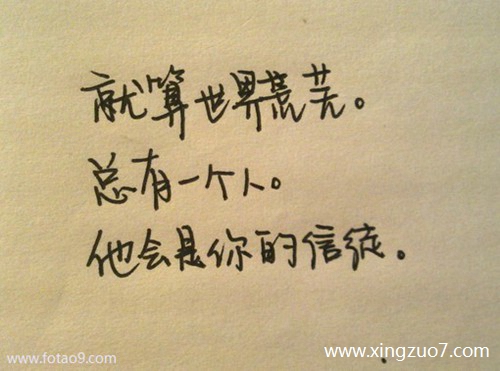 就算世界荒芜。
总有一个人。
他会是你的信徒。
www.fotao9.com
www.xingzuo7.com